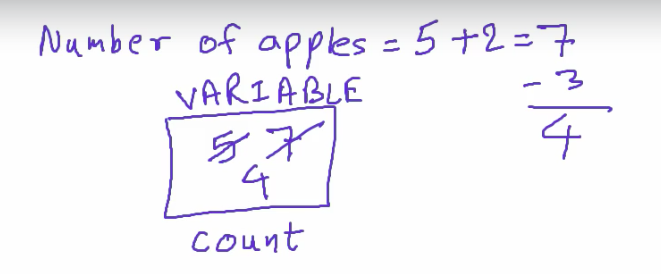 Number of apples = 5 + 2 = 7
- 3
4
VARIABLE
5 7
4
count